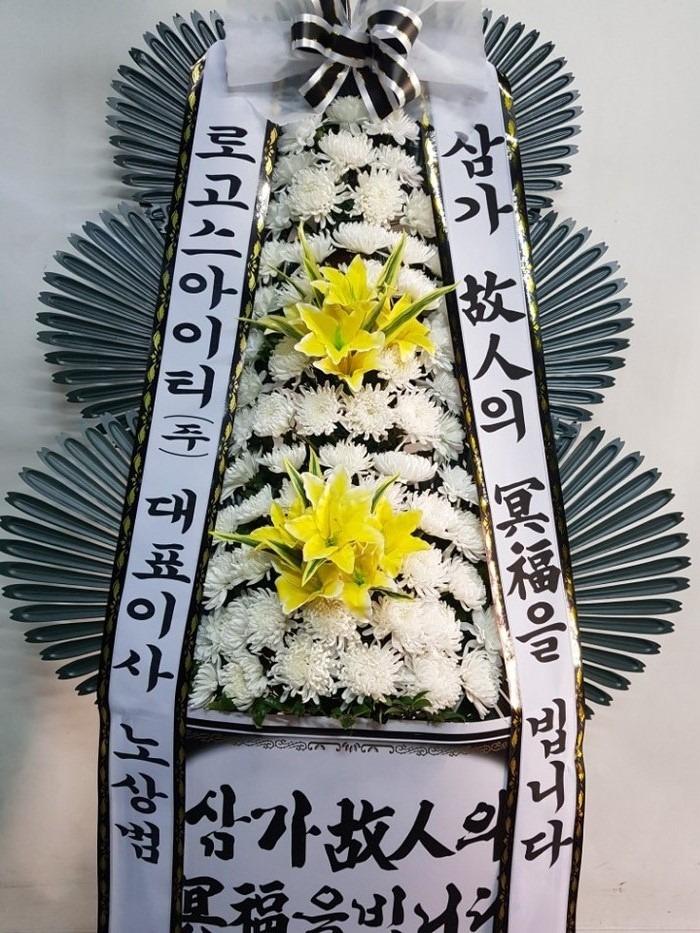 로고스아이티(주) 대표이사 노상범
삼가 故人의 冥福을 빕니다
삼가 故人의
冥福을 빕니다